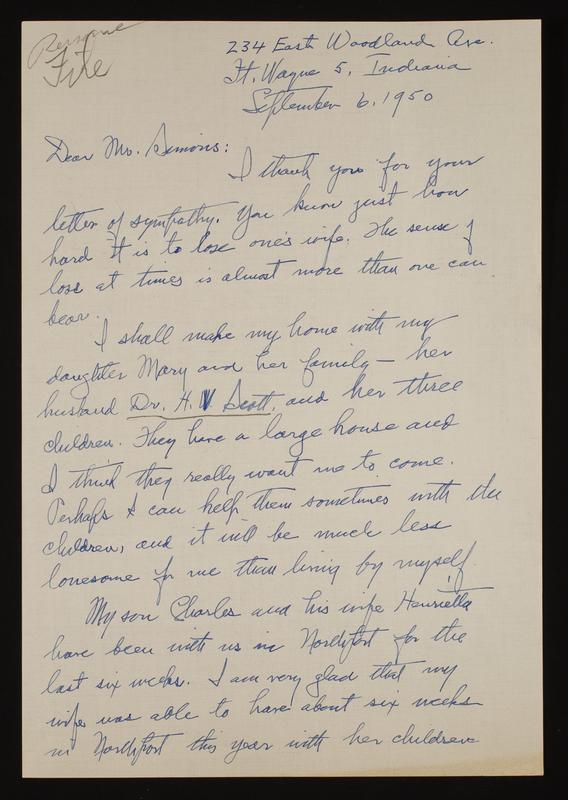 Personal
File
234 East Woodland Ave.
Ft. Wayne 5, Indiana
September 6, 1950
Dear Mr. Simons:
I thank you for your
letter of sympathy. You know just how
hard it is to lose one's wife. The sense of
loss at times is almost more than one can
bear.
I shall make my home with my
daughter Mary and her family — her
husband Dr. H. V. Scott, and her three
children. They have a large house and
I think they really want me to come.
Perhaps I can help them sometimes with the
children, and it will be much less
lonesome for me than living by myself.
My son Charles and his wife Henrietta
have been with us in Northport for the
last six weeks. I am very glad that my
wife was able to have about six weeks
in Northport this year with her children